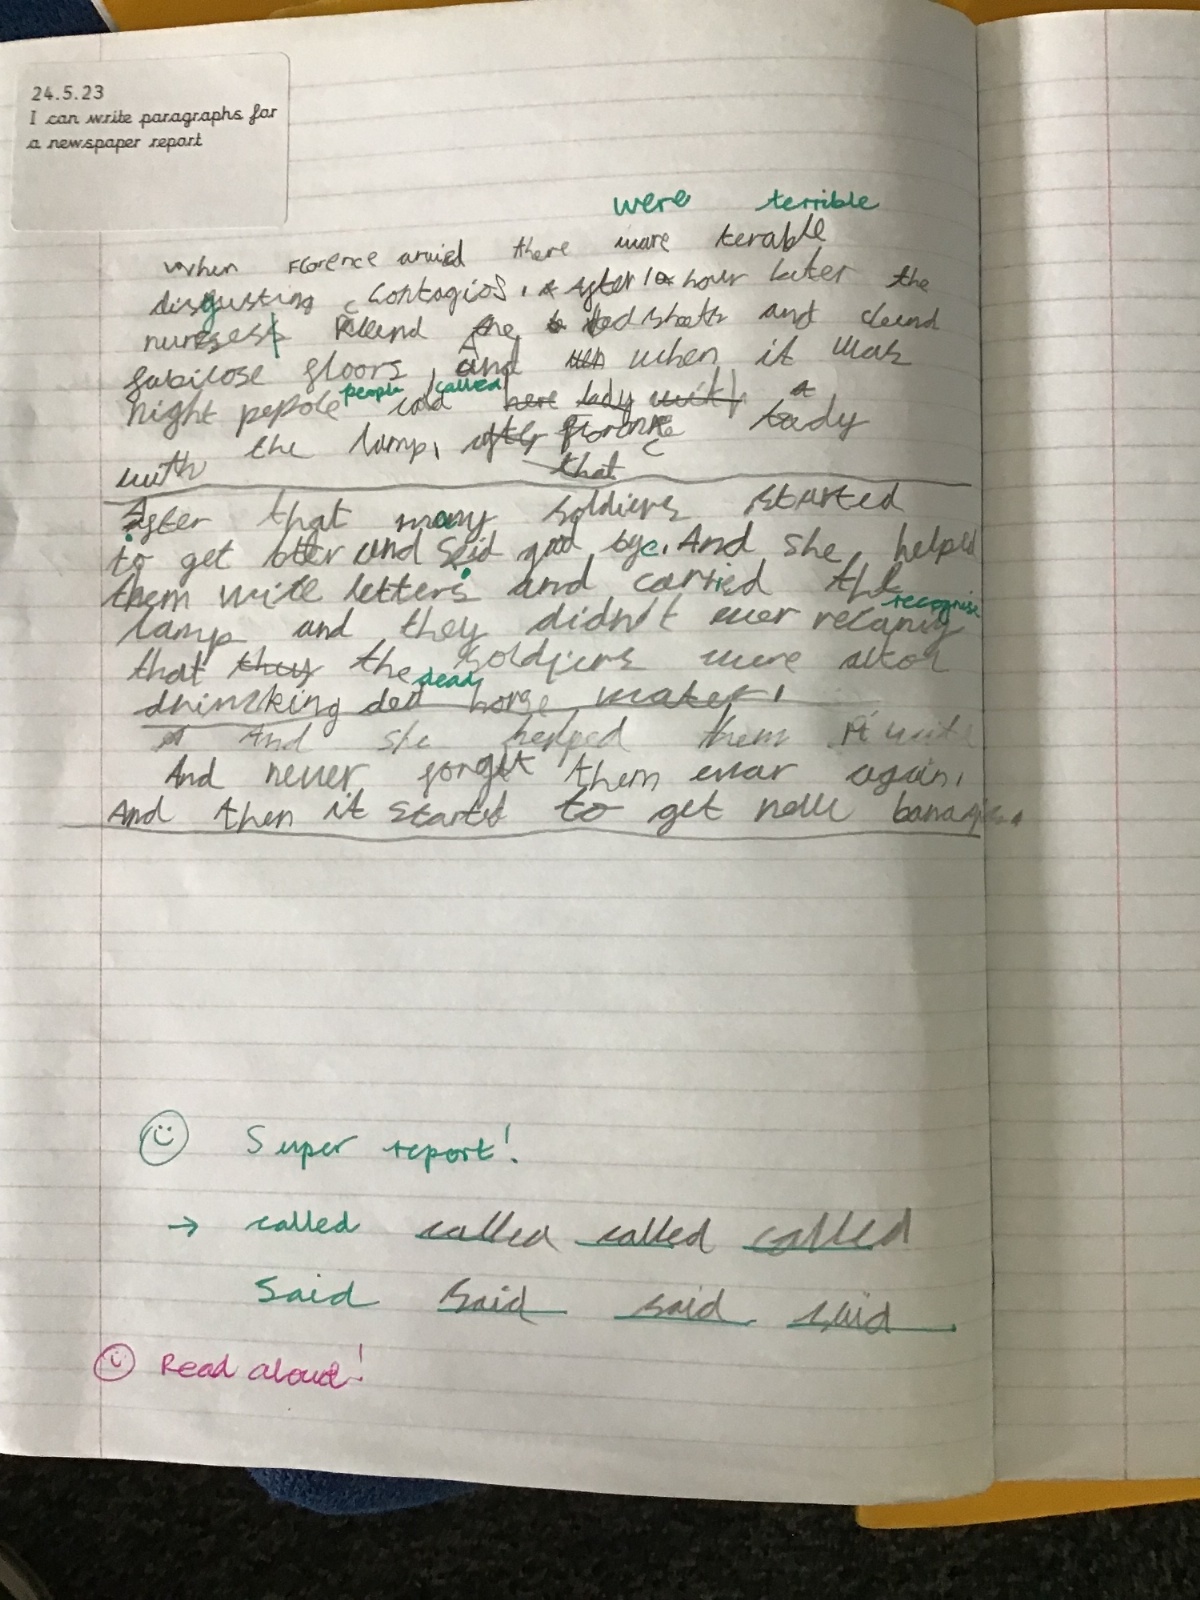 24.5.23
I can write paragraphs for
a newspaper report
were terrible
When Florence arived there ware terable
disgusting contagios. After 1 hour later the
nurses the bed and cleand
fabilose floors, and when it was
people called
night pepole cald here lady with a
lady
with the lamp, after Florence
that
After that many soldiers started
to get btter and Said good bye. And she helped
them write letters and carried the
recognise
lamp and they didn't ever
that they the soldjiers were
dead
drinking ded horse water.
And she helped them write
And never forget them evar again.
And then it started to get new
Super report!
→ called called called called
Said Said said said
Read aloud!